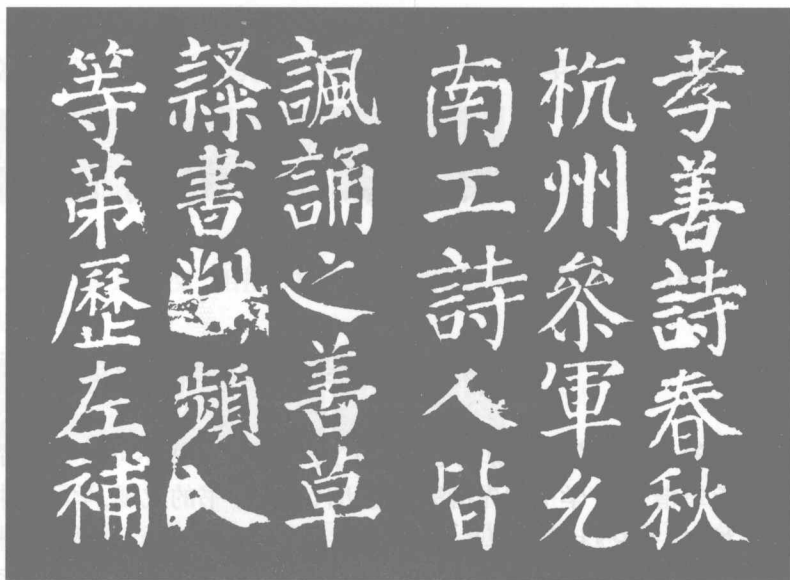 孝善詩春秋
杭州參軍允
南工詩人皆
諷誦之善草
隸書判頻入
等苐歷左補